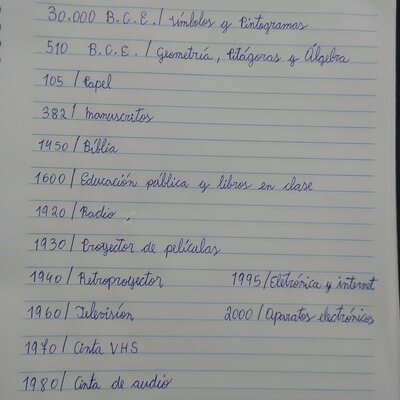 30.000 B.C.E./ Símbolos y Pintogramas
510 B.C.E./ Geometría, Pitágoras y Álgebra
105 / Papel
382/ manuscritos
1450/ Bíblia
1600/ Educación pública y libros en clase
1920/ Radio.
1930/ Proyector de películas
1940/ Retroproyector 1995/Eletrónica y internet
1960/ Televisíon 2000/Aparatos electrónicos
1970/ Cinta VHS
1980/ Cinta de audio